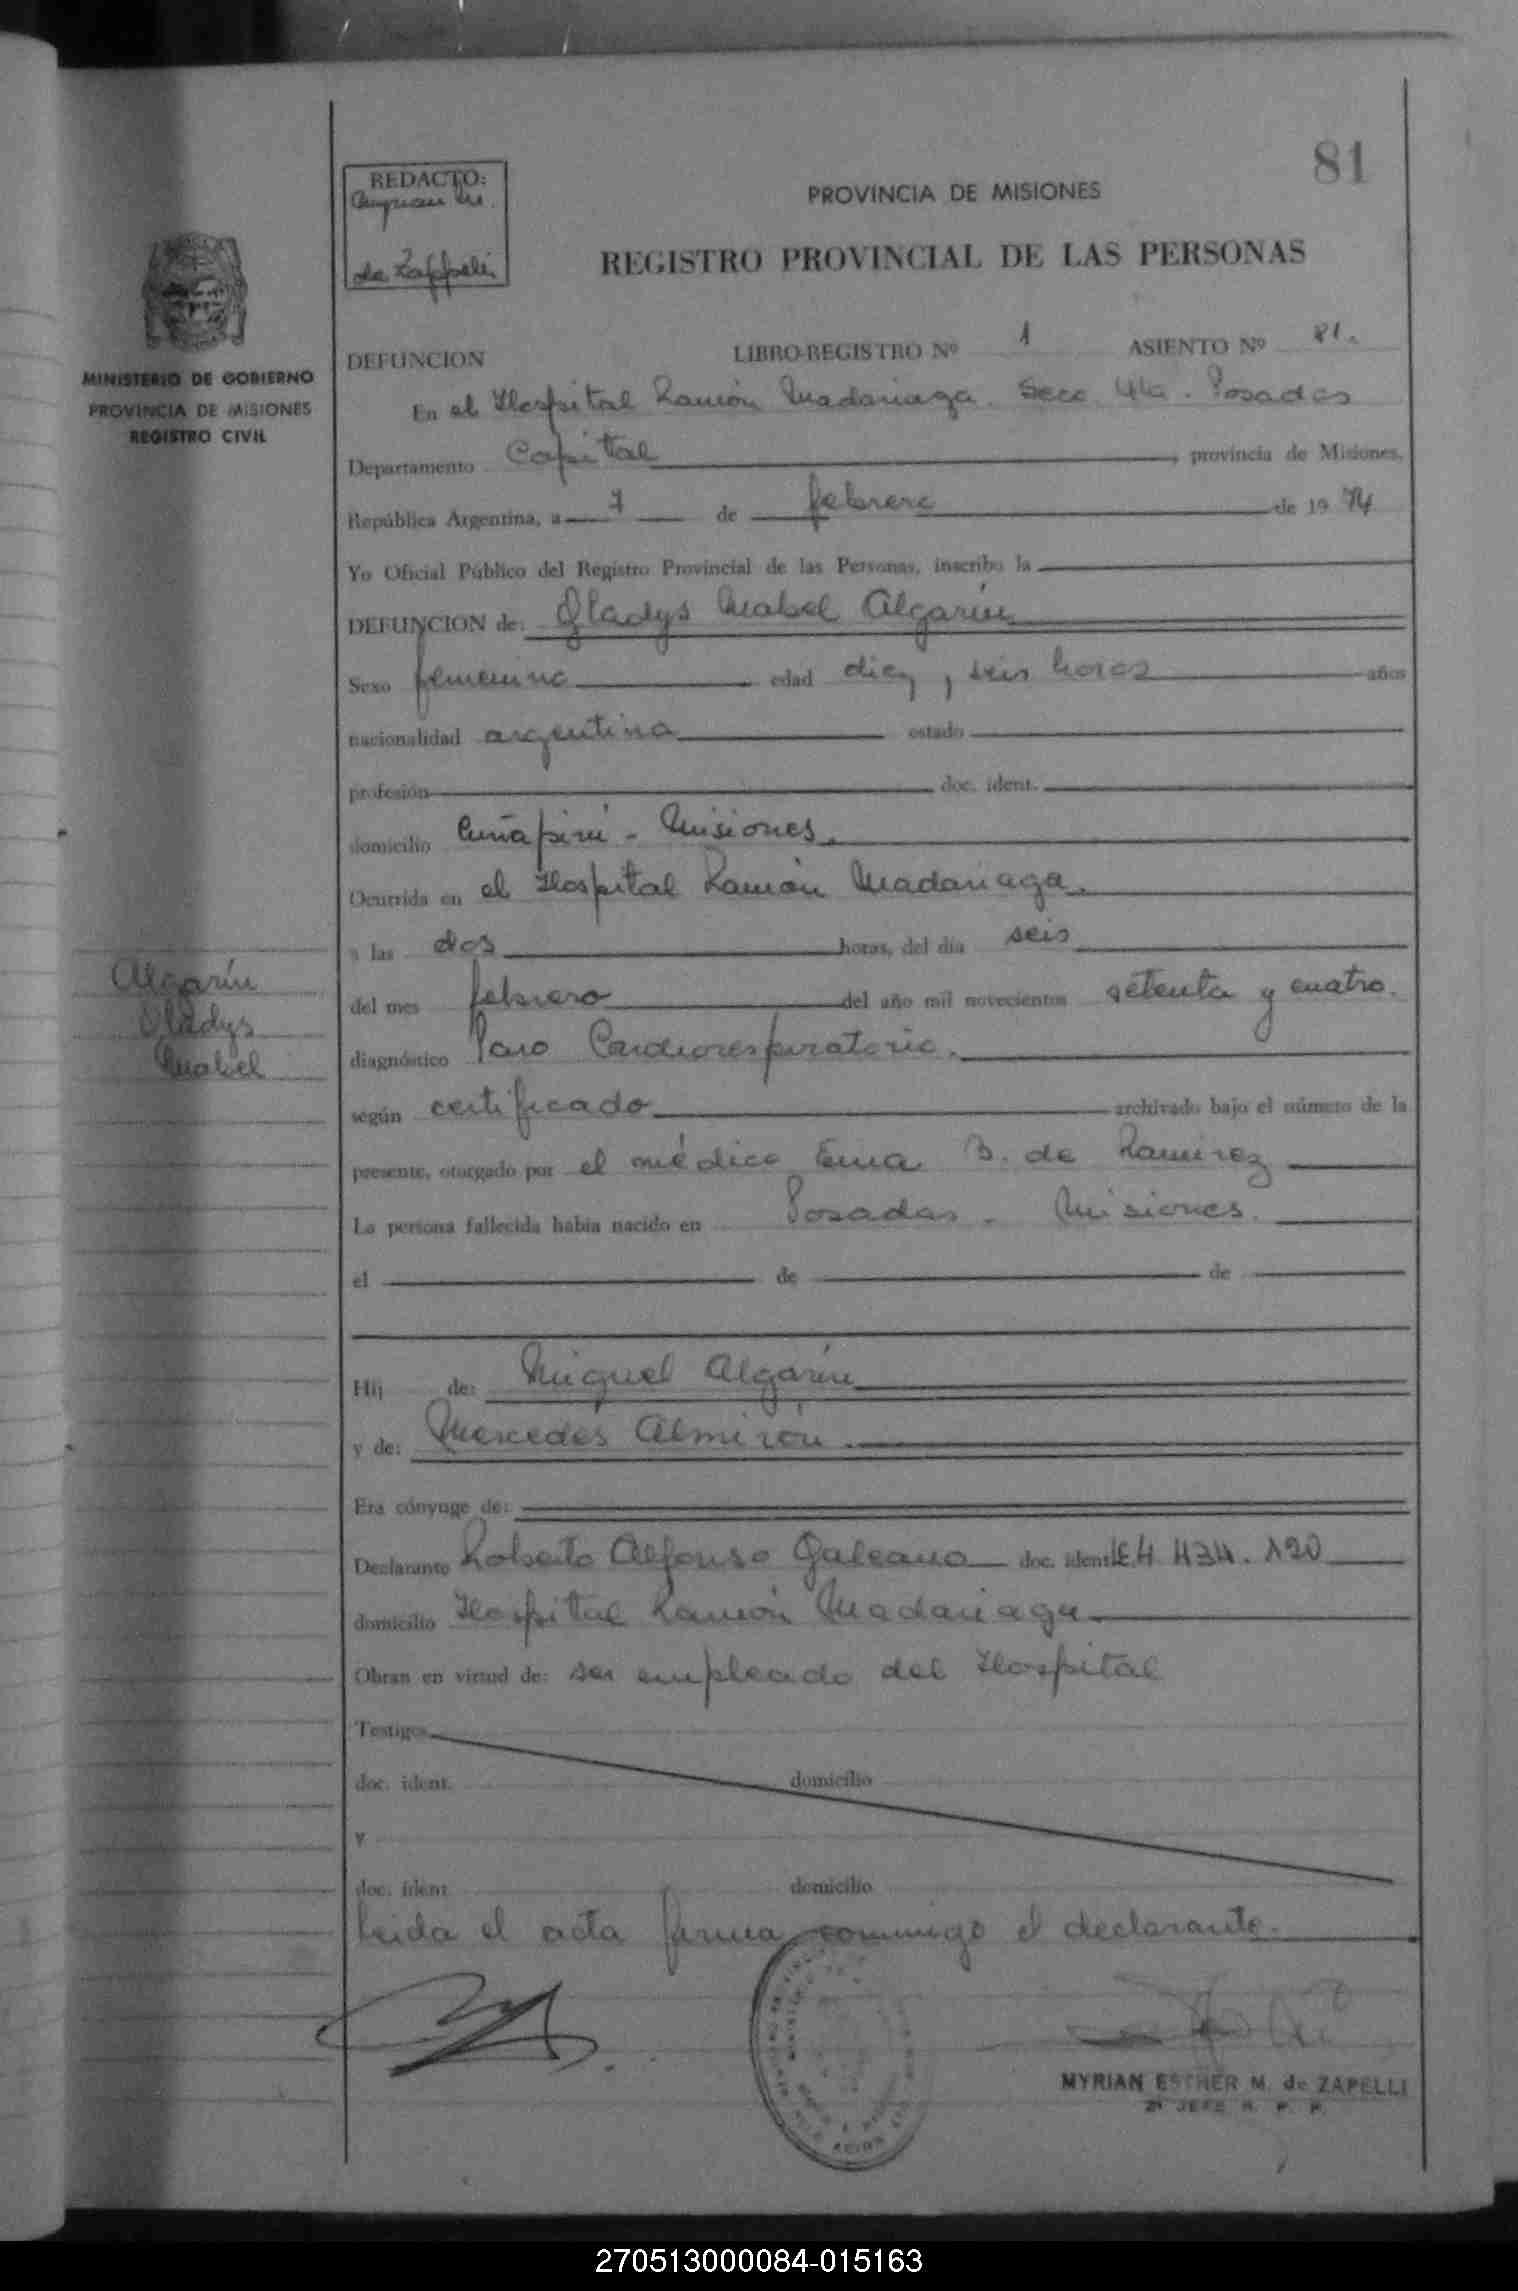 81
REDACTO:
Myrian M.
de Zappelli
PROVINCIA DE MISIONES
REGISTRO PROVINCIAL DE LAS PERSONAS
MINISTERIO DE GOBIERNO
PROVINCIA DE MISIONES
REGISTRO CIVIL
DEFUNCION LIBRO-REGISTRO Nº 1 ASIENTO Nº 81.
En el Hospital Ramón Madariaga. Secc. 4ta. Posadas
Departamento Capital, provincia de Misiones,
República Argentina, a 7 de febrero de 1974
Yo Oficial Público del Registro Provincial de las Personas, inscribo la
DEFUNCION de: Gladys Mabel Algarín
Sexo femenino edad diez y seis horas años
nacionalidad argentina estado
profesión doc. ident.
domicilio Cuñapirú - Misiones.
Ocurrida en el Hospital Ramón Madariaga.
a las dos horas, del día seis
del mes febrero del año mil novecientos setenta y cuatro.
diagnóstico Paro Cardiorespiratorio.
según certificado archivado bajo el número de la
presente, otorgado por el médico Ema B. de Ramirez
La persona fallecida había nacido en Posadas - Misiones.
el de de
Hij de: Miguel Algarín
y de: Mercedes Almirón.
Era cónyuge de:
Declarante Roberto Alfonso Galeano doc. ident. LE 4 434.120
domicilio Hospital Ramón Madariaga
Obran en virtud de: ser empleado del Hospital
Testigos
doc. ident. domicilio
y
doc. ident. domicilio
leida el acta firma conmigo el declarante.
Algarín
Gladys
Mabel
MYRIAN ESTHER M. de ZAPELLI
2º JEFE R. P. P.
270513000084-015163